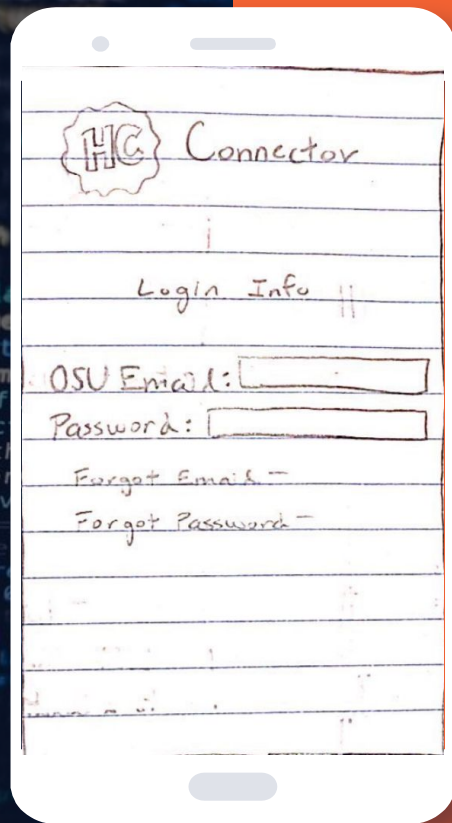 HC Connector
Login Info
OSU Email:
Password:
Forgot Email -
Forgot Password -